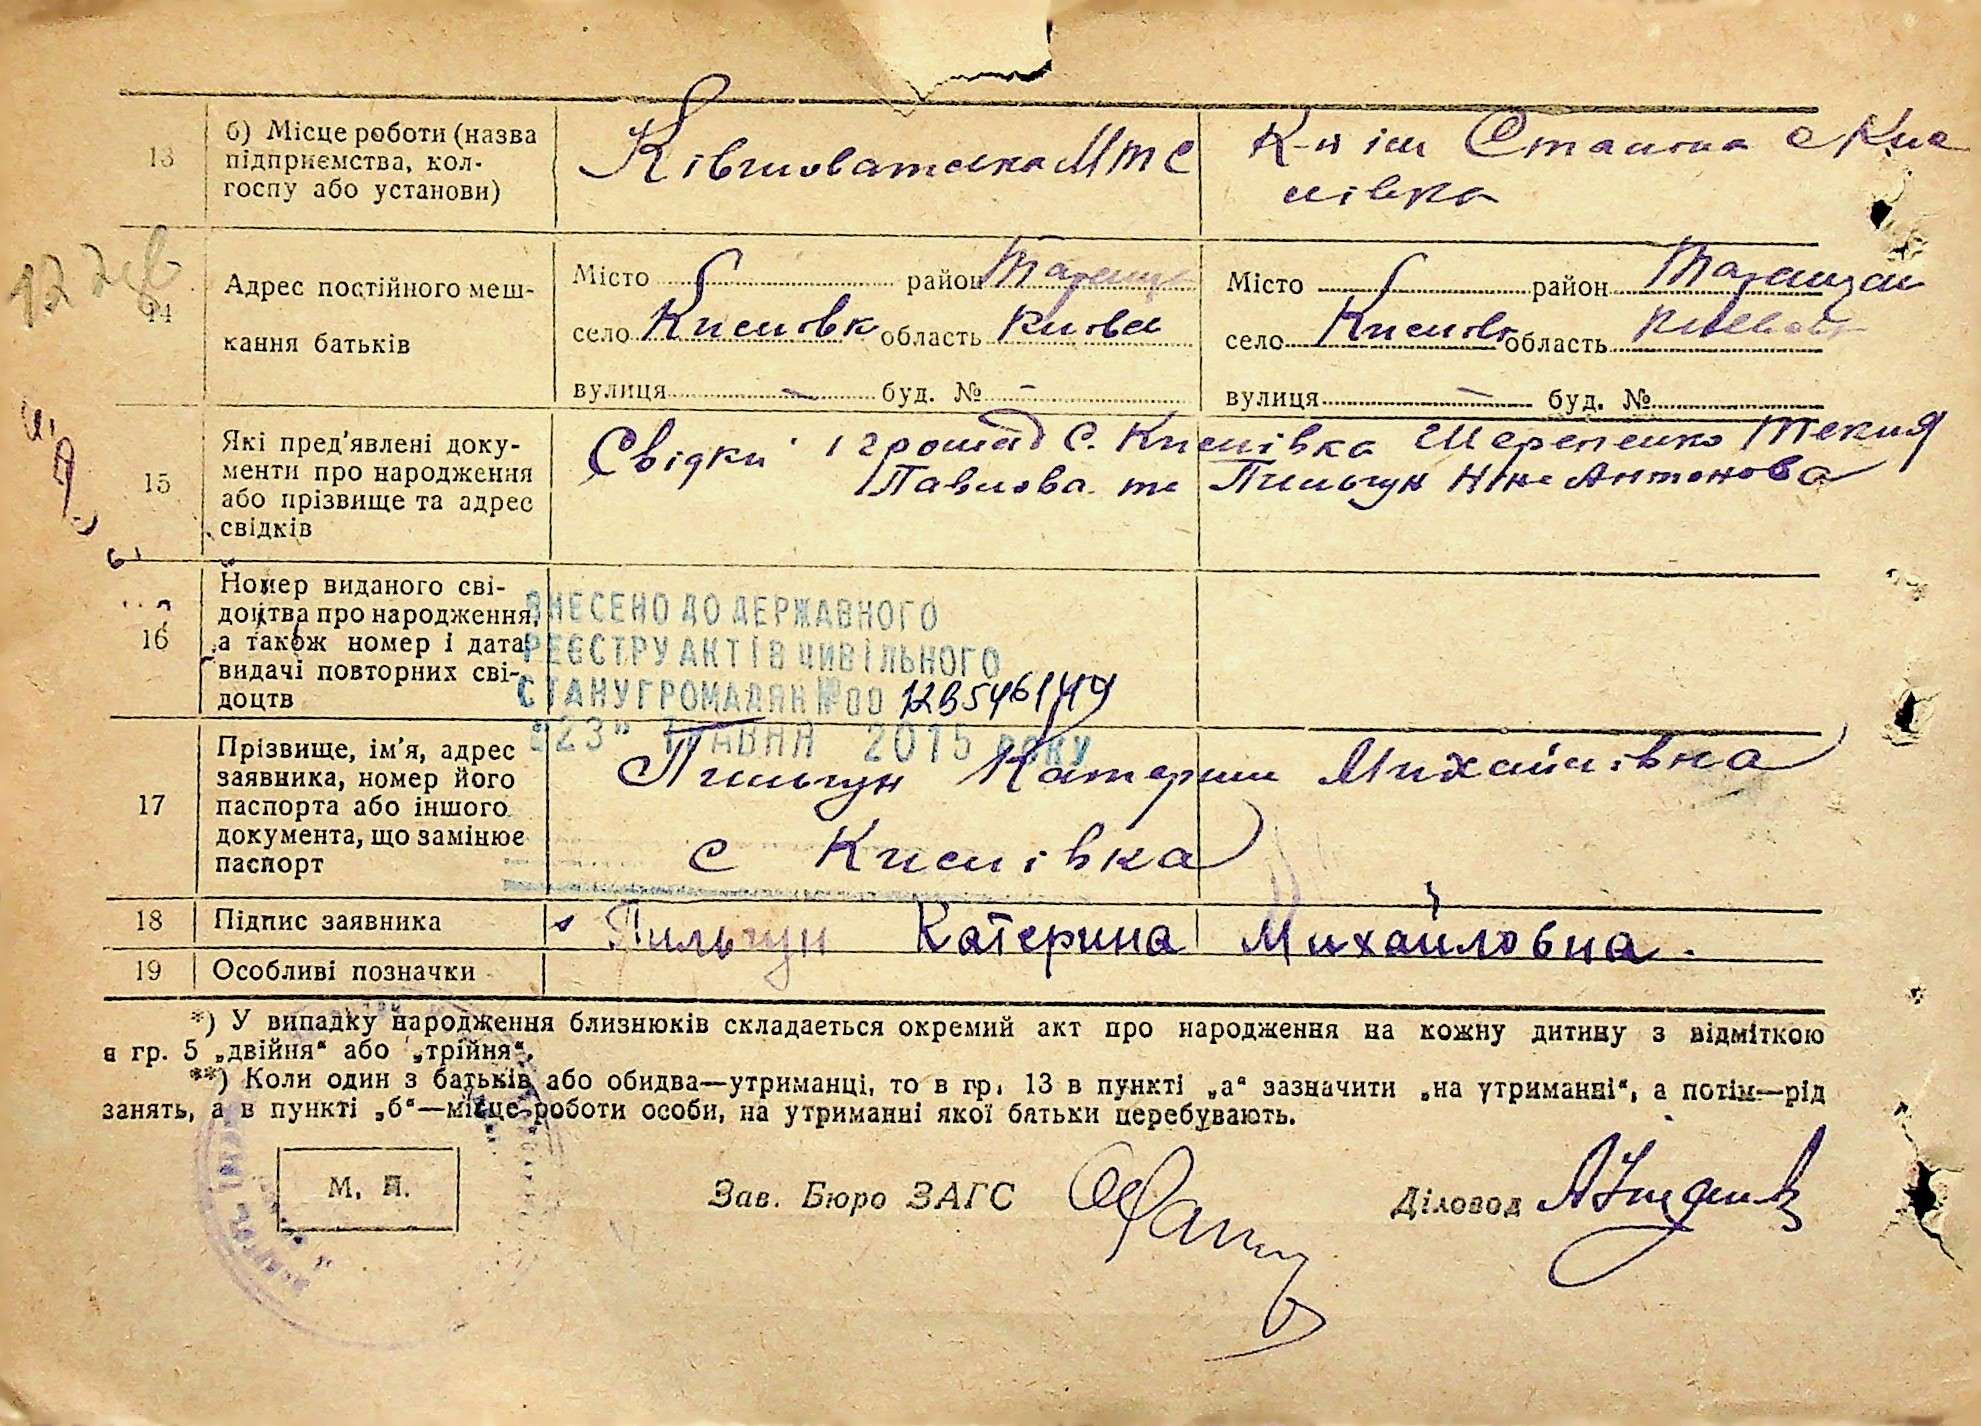 13
б) Місце роботи (назва
підприємства, кол-
госпу або установи)
Ківшоватська МТС
К-п ім Сталіна с Кис
лівка
14
Адрес постійного меш-
кання батьків
Місто район Таращ
село Кислівк область Київсь
вулиця — буд. № -
Місто район Таращан
село Кислівк область
вулиця — буд. №
15
Які пред'явлені доку-
менти про народження
або прізвище та адрес
свідків
Свідки громад с. Кислівка Шерепенко Текля
Павлова та Пильгун Ніна Антонова
16
Номер виданого сві-
доцтва про народження,
а також номер і дата
видачі повторних сві-
доцтв
ВНЕСЕНО ДО ДЕРЖАВНОГО
РЕЄСТРУ АКТІВ ЦИВІЛЬНОГО
СТАНУ ГРОМАДЯН №00
"23" ТРАВНЯ 2015 РОКУ
17
Прізвище, ім'я, адрес
заявника, номер його
паспорта або іншого
документа, що замінює
паспорт
Пильгун Катерина Михайлівна
с Кислівка
18
Підпис заявника
Пильгун Катерина Михайловна.
19
Особливі позначки
*) У випадку народження близнюків складається окремий акт про народження на кожну дитину з відміткою
в гр. 5 „двійня" або „трійня".
**) Коли один з батьків або обидва—утриманці, то в гр. 13 в пункті „а" зазначити „на утриманні", а потім—рід
занять, а в пункті „б"—місце роботи особи, на утриманні якої батьки перебувають.
М. П.
Зав. Бюро ЗАГС
Діловод